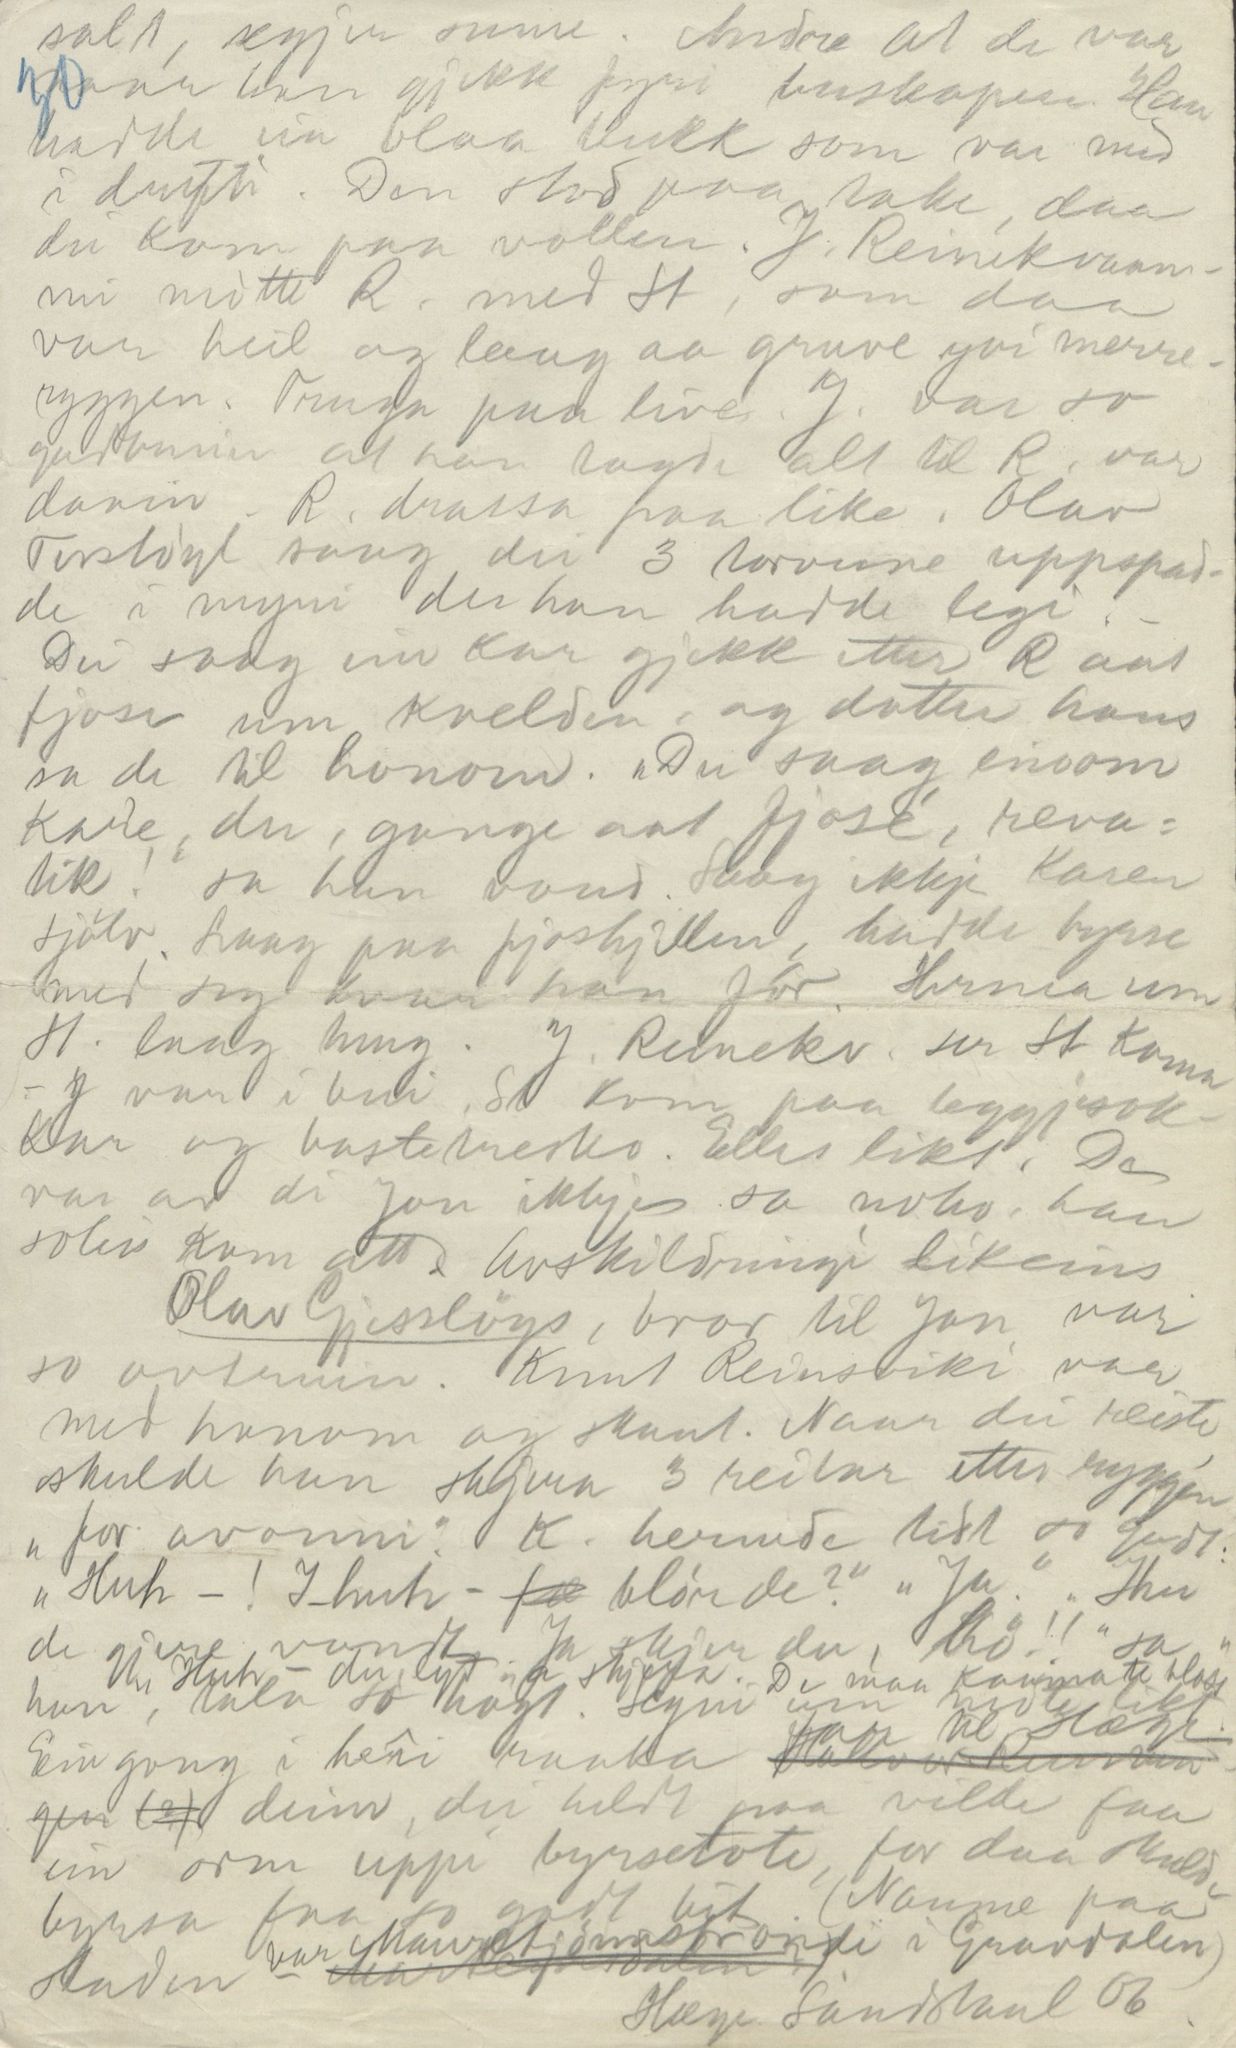 salt, segjer sume. Andre at de var
40
naar han gjekk fyri buskapen. Han
hadde ein blaa bukk som var med
i drifti. Den stod paa take, daa
dei kom paa vollen. J. Reinekvaam-
mi møtte R. med St, som daa
var heil og laag aa gruve yvi merre-
ryggen. Truga paa live. J. var so
godvurin at han lagde alt til R. var
daain. R. drassa paa like. Olav
saag dei 3 torvune uppspad-
de i myri der han hadde legi. –
Dei saag ein kar gjekk etter R aat
fjose um kvelden, og dotter hans
sa de til honom. "Du saag einom
kare, du, gange aat fjosé, reva-
tik!" sa han vond. Saag ikkje karen
sjölv. Laag paa fjoshjellen, hadde byrse
med seg kvar han fór. um
St. laag hug. J. Reinekv. ser St koma
– J var i bui. St kom paa leggjesok-
kar og bastetresko. Elles likt. De
var av di Jon ikkje sa noko, han
solei kom att. Avskildringi likeins
Olav Gjesslögs, bror til Jon var
so Knut Reinsviki var
med honom og skaut. Naar dei reiste
skulde han skjera 3 reitar etter ryggen
"for avonni". K. hermde tidt so godt:
"Huh –! I-huh – blör de?" "Ja." "Ihu
de gjere vondt. Ja skjer du, hö!!" sa
Uh Huh – du lyt skjera. De maa blad
han, tala so högt. Segni um likt
Jon til Hæge.
Ein gong i heii raaka
deim, dei heldt paa vilde faa
ein orm uppi byrsetote, for daa skuld
byrsa faa so godt bit. (Namne paa
staden var i Gravdalen)
Hæge Sandstaul 06.